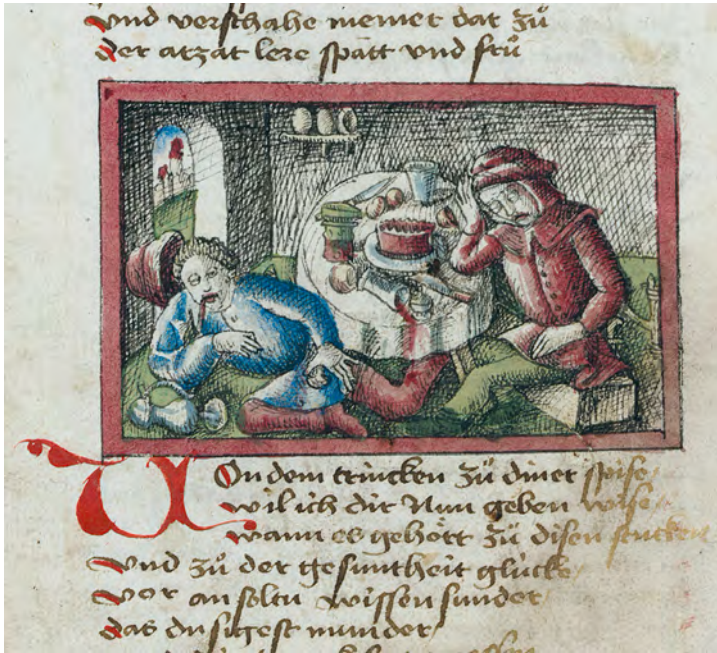 vnd verschahe meinet dar zů
der arzat lere spātt vnd frů
Von dem trincken zů diner speise
wil ich dir Nun geben weise
wann es gehört zů disen stucken
vnd zů der gesuntheit glücke
vor an soltu wissen sunder
das du